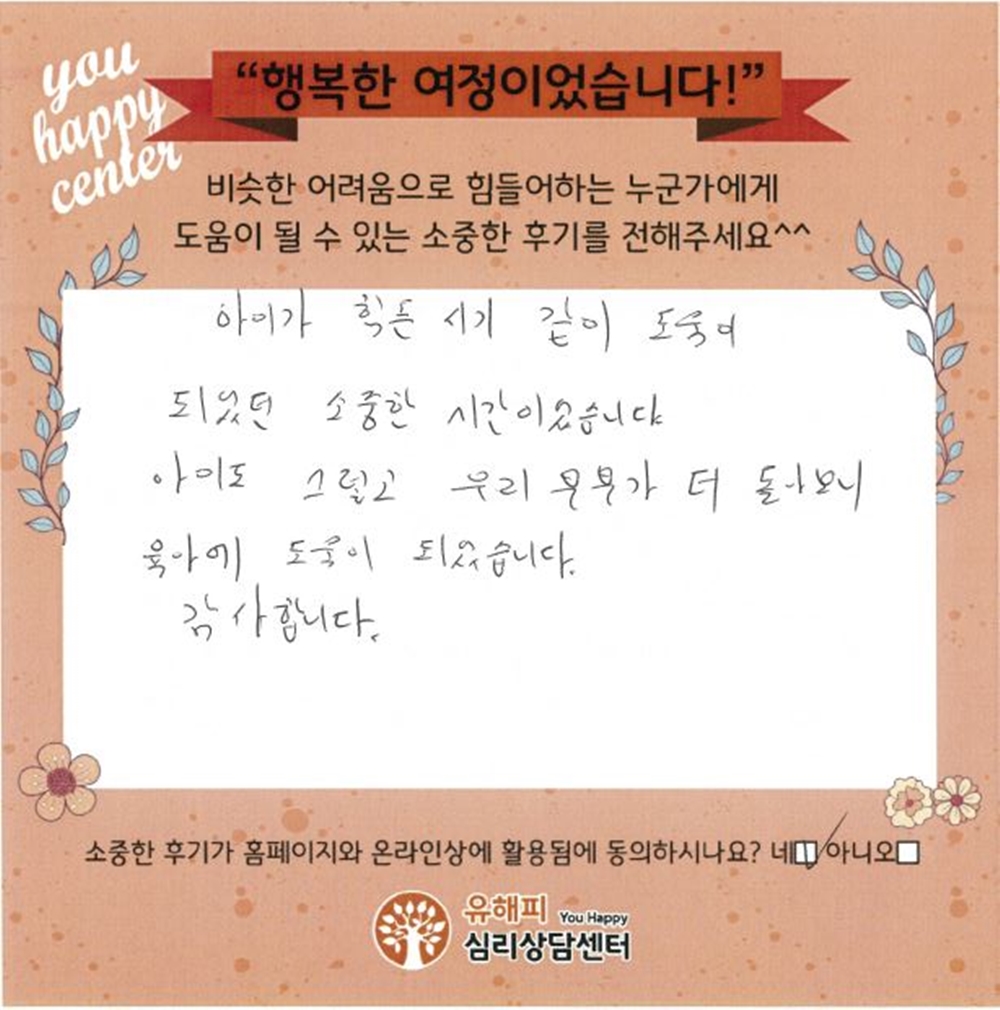 you
happy
center
“행복한 여정이었습니다!”
비슷한 어려움으로 힘들어하는 누군가에게
도움이 될 수 있는 소중한 후기를 전해주세요^^
아이가 힉든 시기 같이 도움이
되었던 소중한 시간이었습니다
아이도 그렇고 우리 부부가 더 돌아보니
육아에 도움이 되었습니다.
감사합니다.
소중한 후기가 홈페이지와 온라인상에 활용됨에 동의하시나요? 네 아니오
유해피 You Happy
심리상담센터